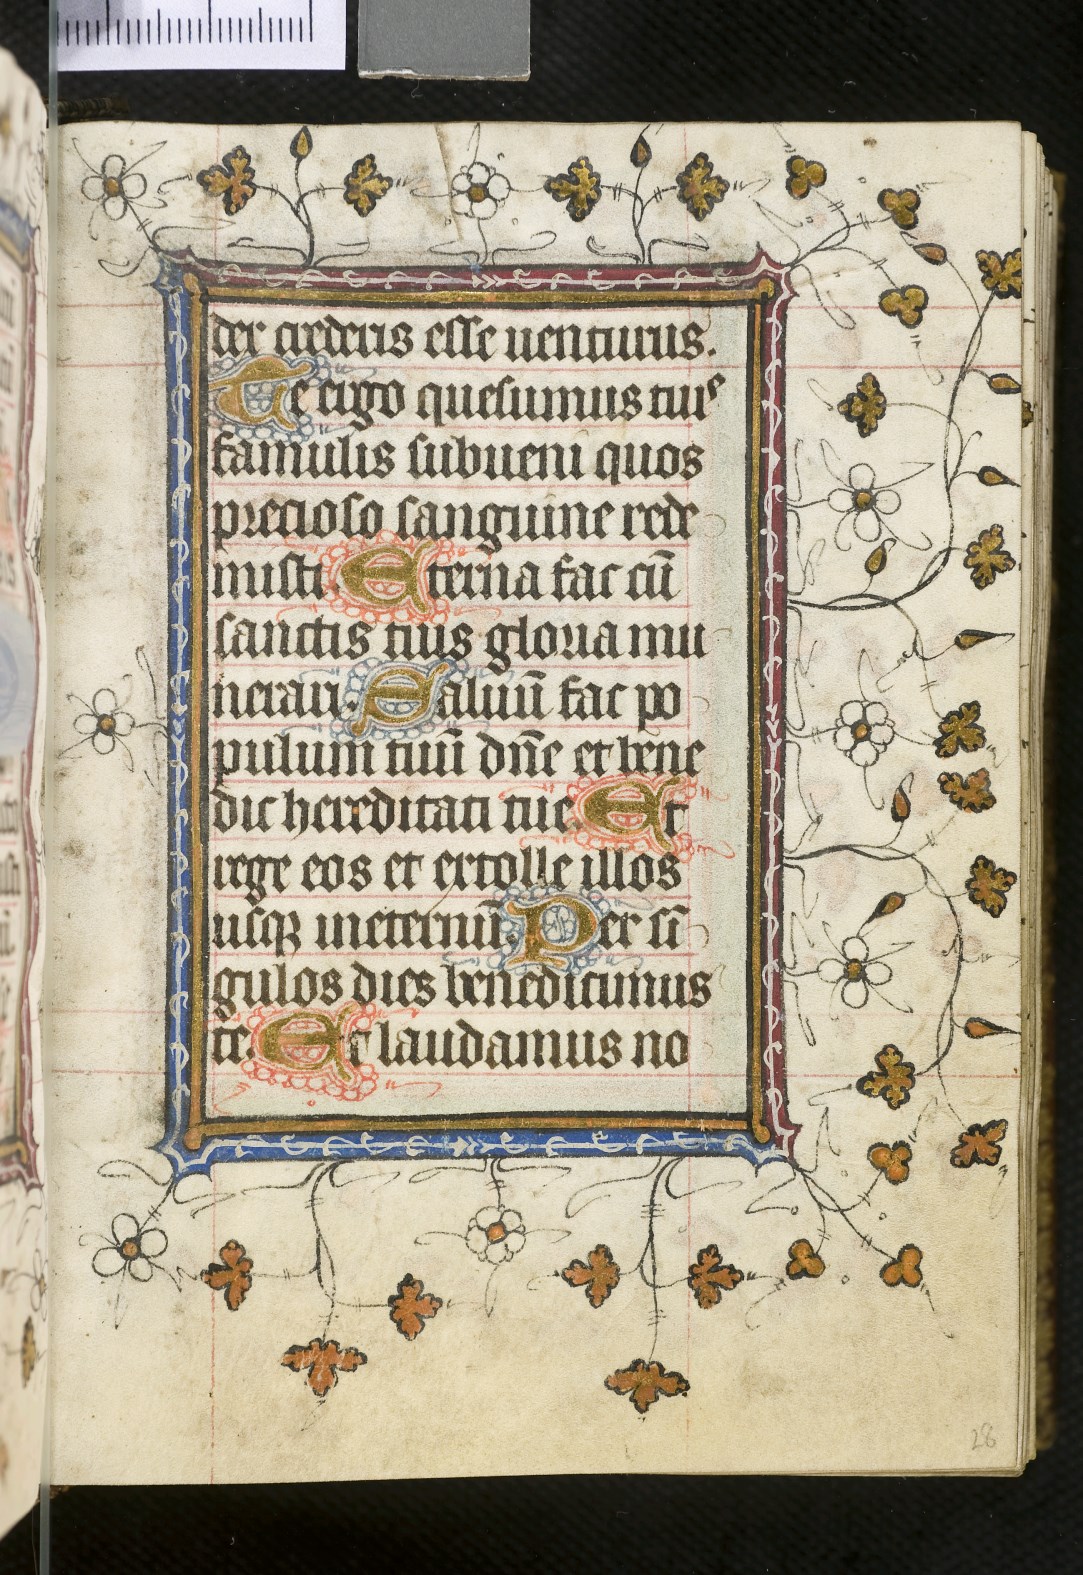 der crederis esse uenturus.
Te ergo quesumus tuis
famulis subueni quos
precioso sanguine rede
misti Eterna fac cū
sanctis tuis gloria mu
nerari. Saluū fac po
pulum tuū dn̄e et bene
dic hereditati tue. Et
rege eos et extolle illos
usq; ineternū. Per sī
gulos dies benedicimus
te. Et laudamus no
28